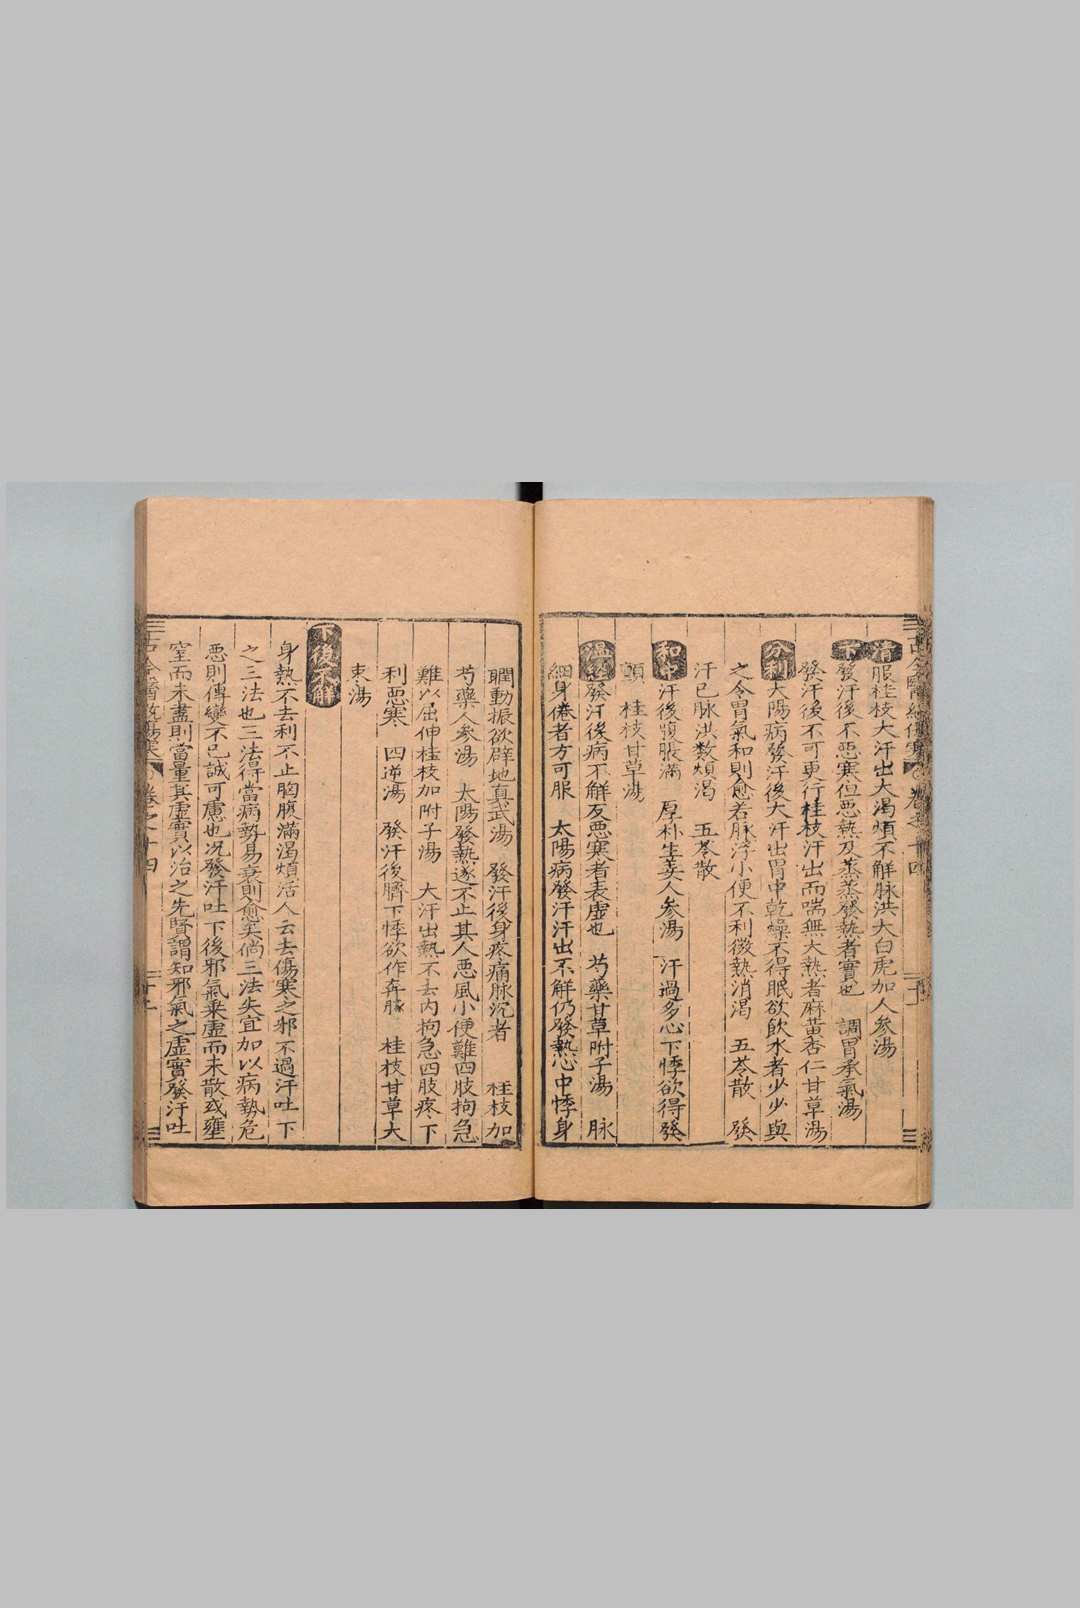 清服桂枝大汗出大渴煩不解脉洪大白虎加人參湯
下發汗後不惡寒但惡熱及蒸蒸發熱者實也 調胃承氣湯
發汗後不可更行桂枝汗出而喘無大熱者麻黄杏仁甘草湯
分利太陽病發汗後大汗出胃中乾燥不得眠欲飲水者少少與
之令胃氣和則愈若脉浮小便不利微熱消渴 五苓散 發
汗已脉洪数煩渴 五苓散
和中汗後腹脹滿 厚朴生姜人參湯 汗過多心下悸欲得發
顫 桂枝甘草湯
温經發汗後病不解反惡寒者表虛也 芍藥甘草附子湯 脉
細身倦者方可服 太陽病發汗汗出不解仍發熱心中悸身
瞤動振欲擗地真武湯 發汗後身疼痛脉沉者 桂枝加
芍藥人參湯 太陽發熱遂不止其人惡風小便難四肢拘急
難以屈伸桂枝加附子湯 大汗出熱不去内拘急四肢疼下
利惡寒 四逆湯 發汗後臍下悸欲作奔豚 桂枝甘草大
棗湯
下後不解
身熱不去利不止胸腹滿渴煩活人云去傷寒之邪不過汗吐下
之三法也三法得當病勢易衰則愈矣倘三法失宜加以病勢危
惡則傳變不已誠可慮也况發汗吐下後邪氣乘虛而未散或壅
窒而未盡則當量其虛實以治之先賢謂知邪氣之虛實發汗吐
卷之十四